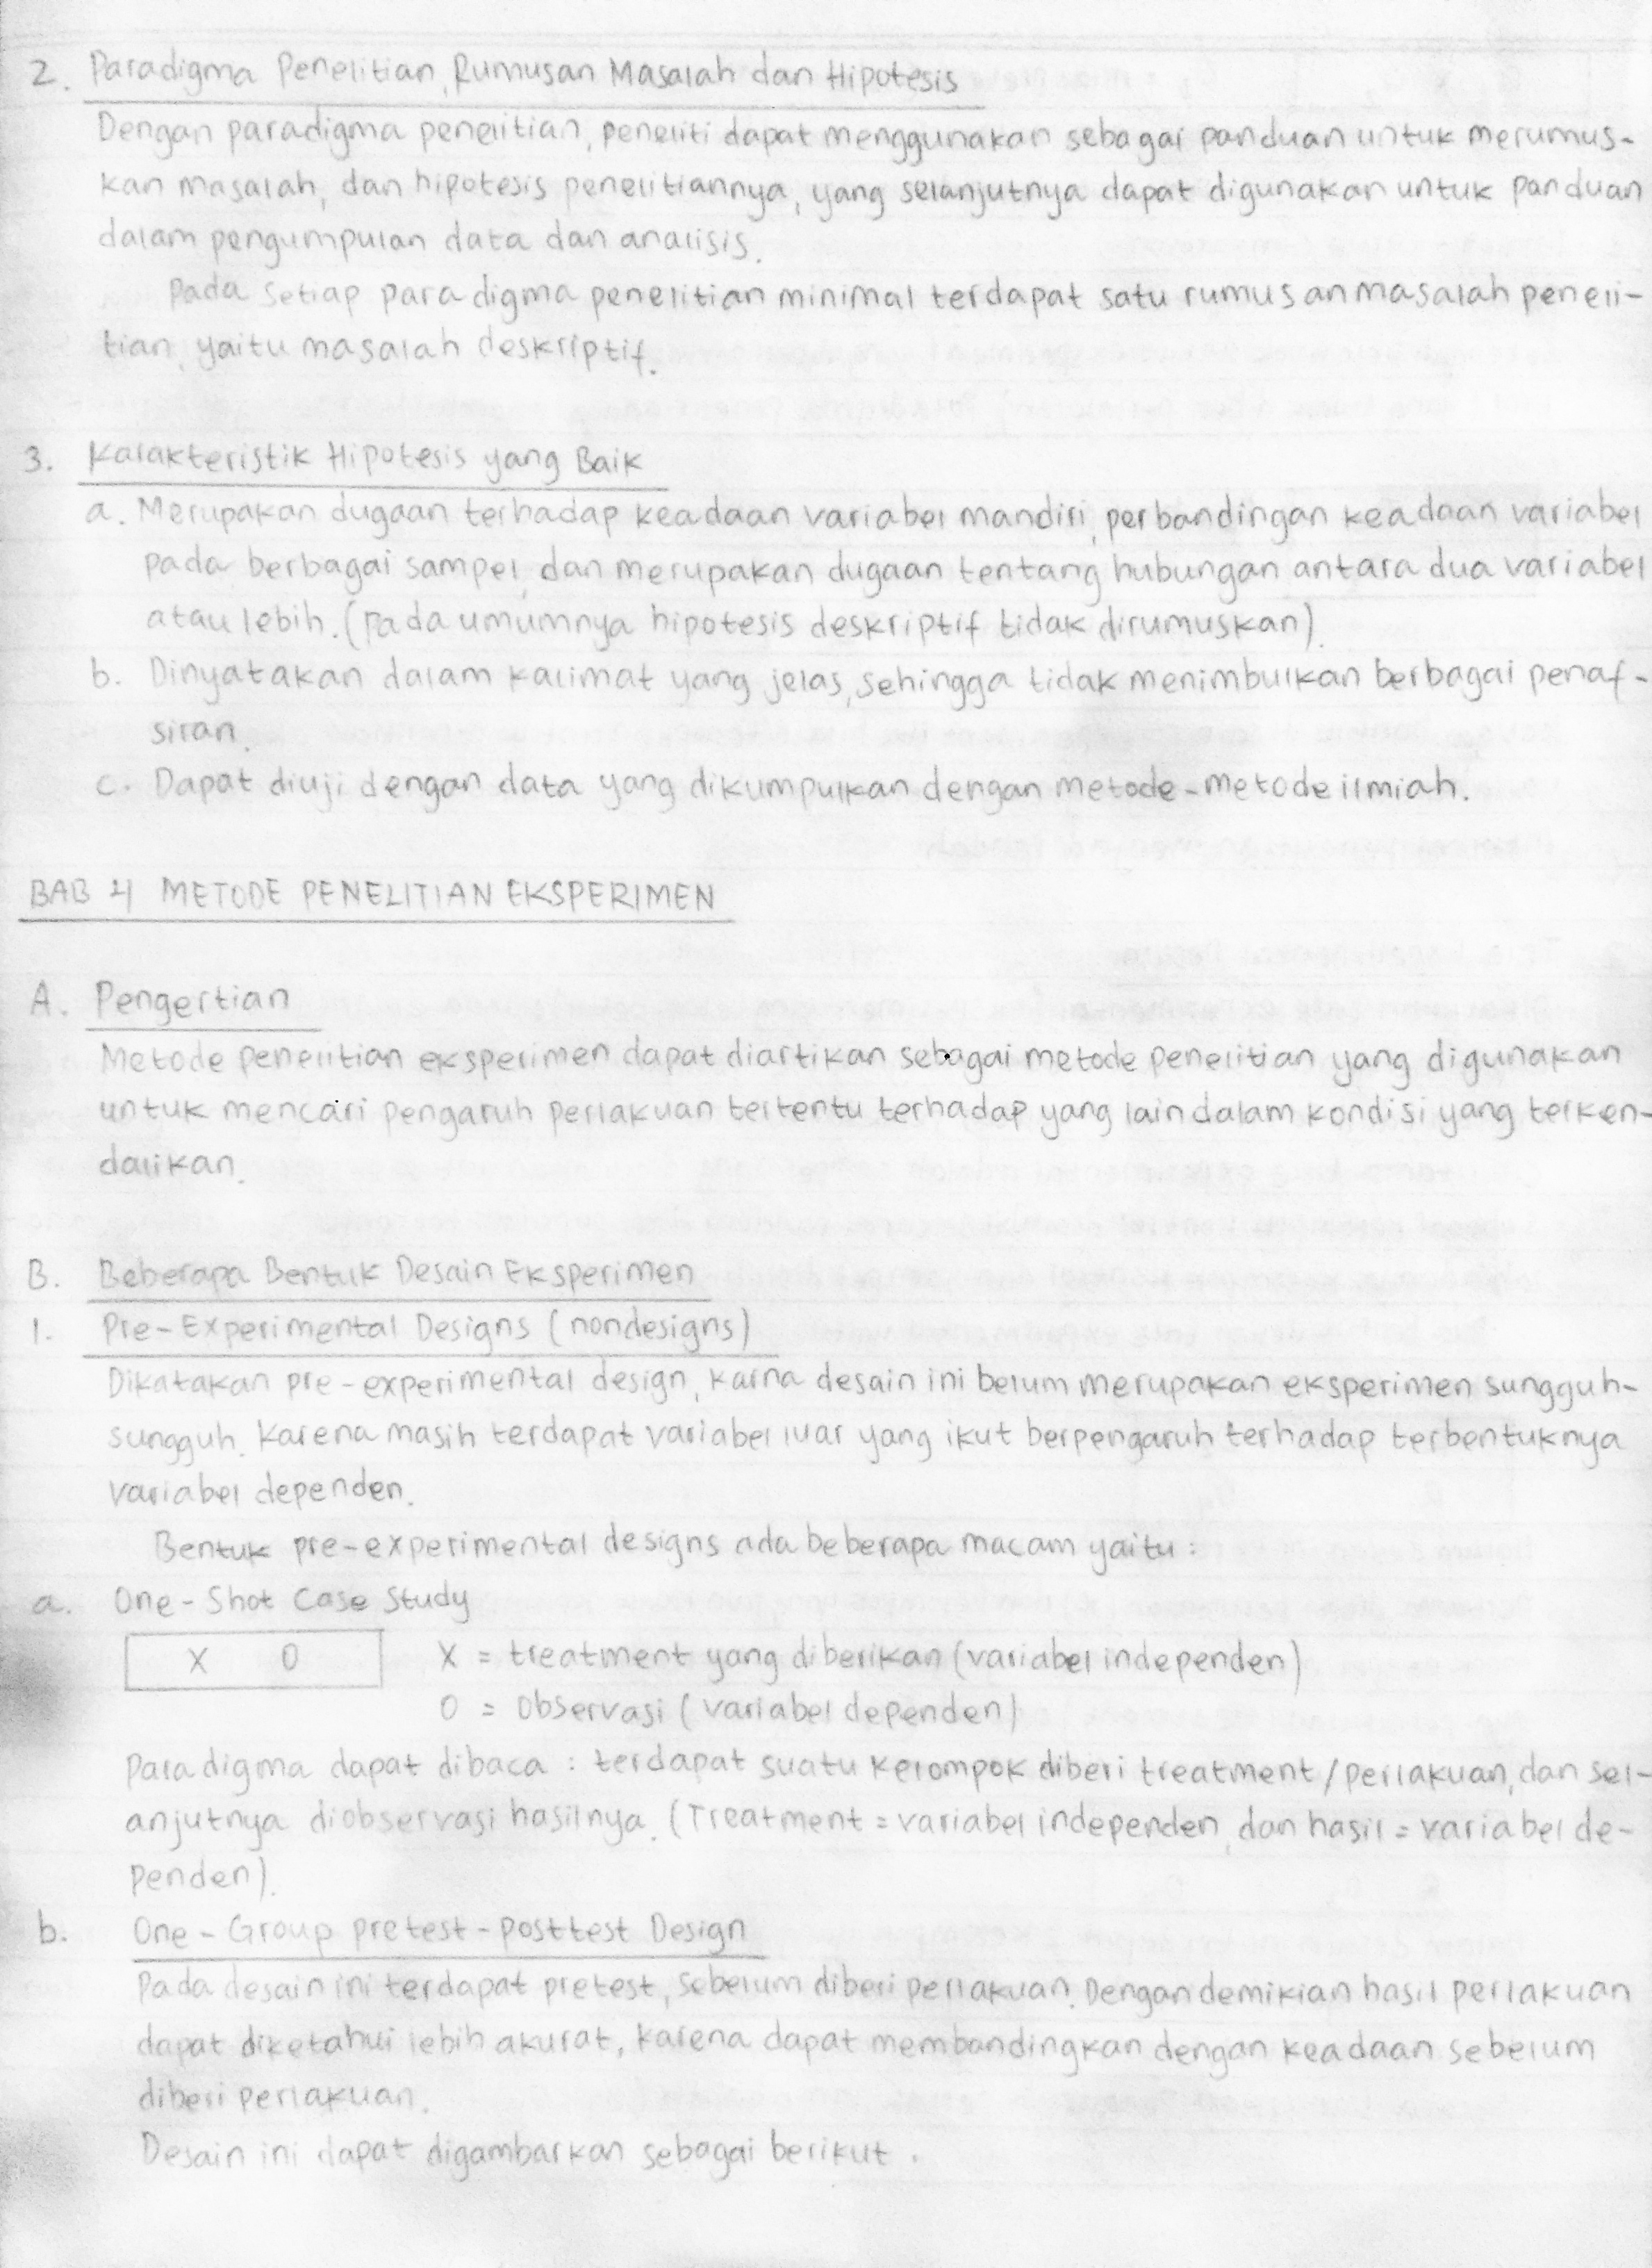 2. Paradigma Penelitian, Rumusan Masalah dan Hipotesis
Dengan paradigma penelitian, peneliti dapat menggunakan sebagai panduan untuk merumus-
kan masalah, dan hipotesis penelitiannya, yang selanjutnya dapat digunakan untuk panduan
dalam pengumpulan data dan analisis.
Pada setiap paradigma penelitian minimal terdapat satu rumusan masalah peneli-
tian, yaitu masalah deskriptif.
3. Karakteristik Hipotesis yang Baik
a. Merupakan dugaan terhadap keadaan variabel mandiri, perbandingan keadaan variabel
pada berbagai sampel, dan merupakan dugaan tentang hubungan antara dua variabel
atau lebih. (Pada umumnya hipotesis deskriptif tidak dirumuskan).
b. Dinyatakan dalam kalimat yang jelas, sehingga tidak menimbulkan berbagai penaf-
siran.
c. Dapat diuji dengan data yang dikumpulkan dengan metode-metode ilmiah.
BAB 4 METODE PENELITIAN EKSPERIMEN
A. Pengertian
Metode penelitian eksperimen dapat diartikan sebagai metode penelitian yang digunakan
untuk mencari pengaruh perlakuan tertentu terhadap yang lain dalam kondisi yang terken-
dalikan.
B. Beberapa Bentuk Desain Eksperimen
1. Pre-Experimental Designs (nondesigns)
Dikatakan pre-experimental design, karna desain ini belum merupakan eksperimen sungguh-
sungguh. Karena masih terdapat variabel luar yang ikut berpengaruh terhadap terbentuknya
variabel dependen.
Bentuk pre-experimental designs ada beberapa macam yaitu :
a. One-Shot Case Study
X O X = treatment yang diberikan (variabel independen)
O = Observasi (variabel dependen)
Paradigma dapat dibaca : terdapat suatu kelompok diberi treatment/perlakuan, dan sel-
anjutnya diobservasi hasilnya. (Treatment = variabel independen, dan hasil = variabel de-
penden).
b. One-Group pretest-posttest Design
Pada desain ini terdapat pretest, sebelum diberi perlakuan. Dengan demikian hasil perlakuan
dapat diketahui lebih akurat, karena dapat membandingkan dengan keadaan sebelum
diberi perlakuan.
Desain ini dapat digambarkan sebagai berikut.